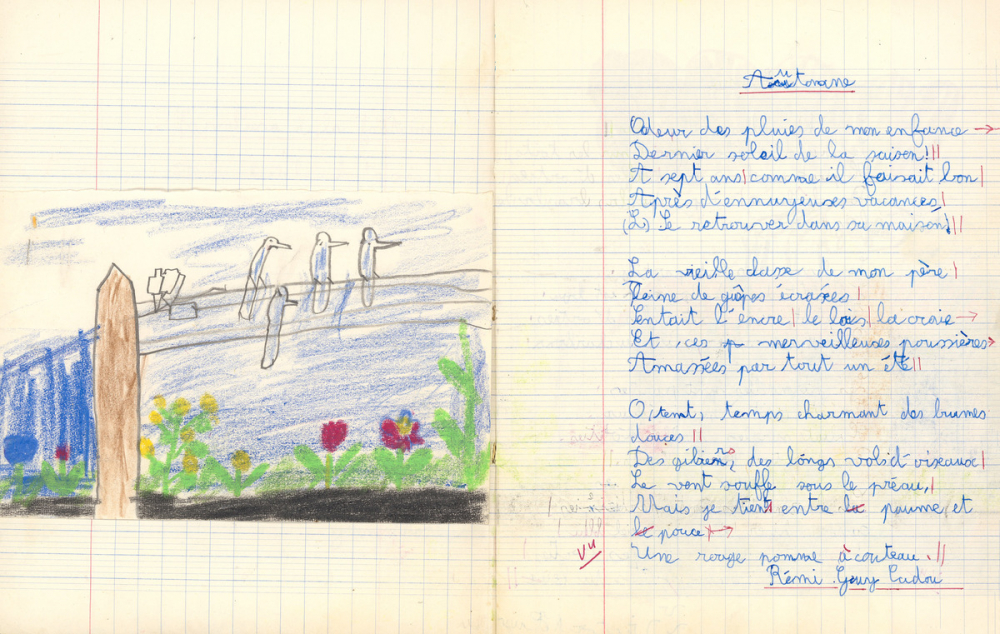 Automne
Odeur des pluies de mon enfance →
Dernier soleil de la saison!||
A sept ans|comme il faisait bon|
Après d'ennuyeuses vacances|
Se retrouver dans sa maison!||
La vieille classe de mon père|
Pleine de guêpes écrasées|
Sentait l'encre|le bois|la craie →
Et ces merveilleuses poussières→
Amassées par tout un été||
O, temps charmant des brumes
douces ||
Des gibiers, des longs vols d'oiseaux|
Le vent souffle sous le préau,|
Mais je tiens entre paume et
pouce →
Une rouge pomme à couteau.||
Vu
Rémi Guy Cadou